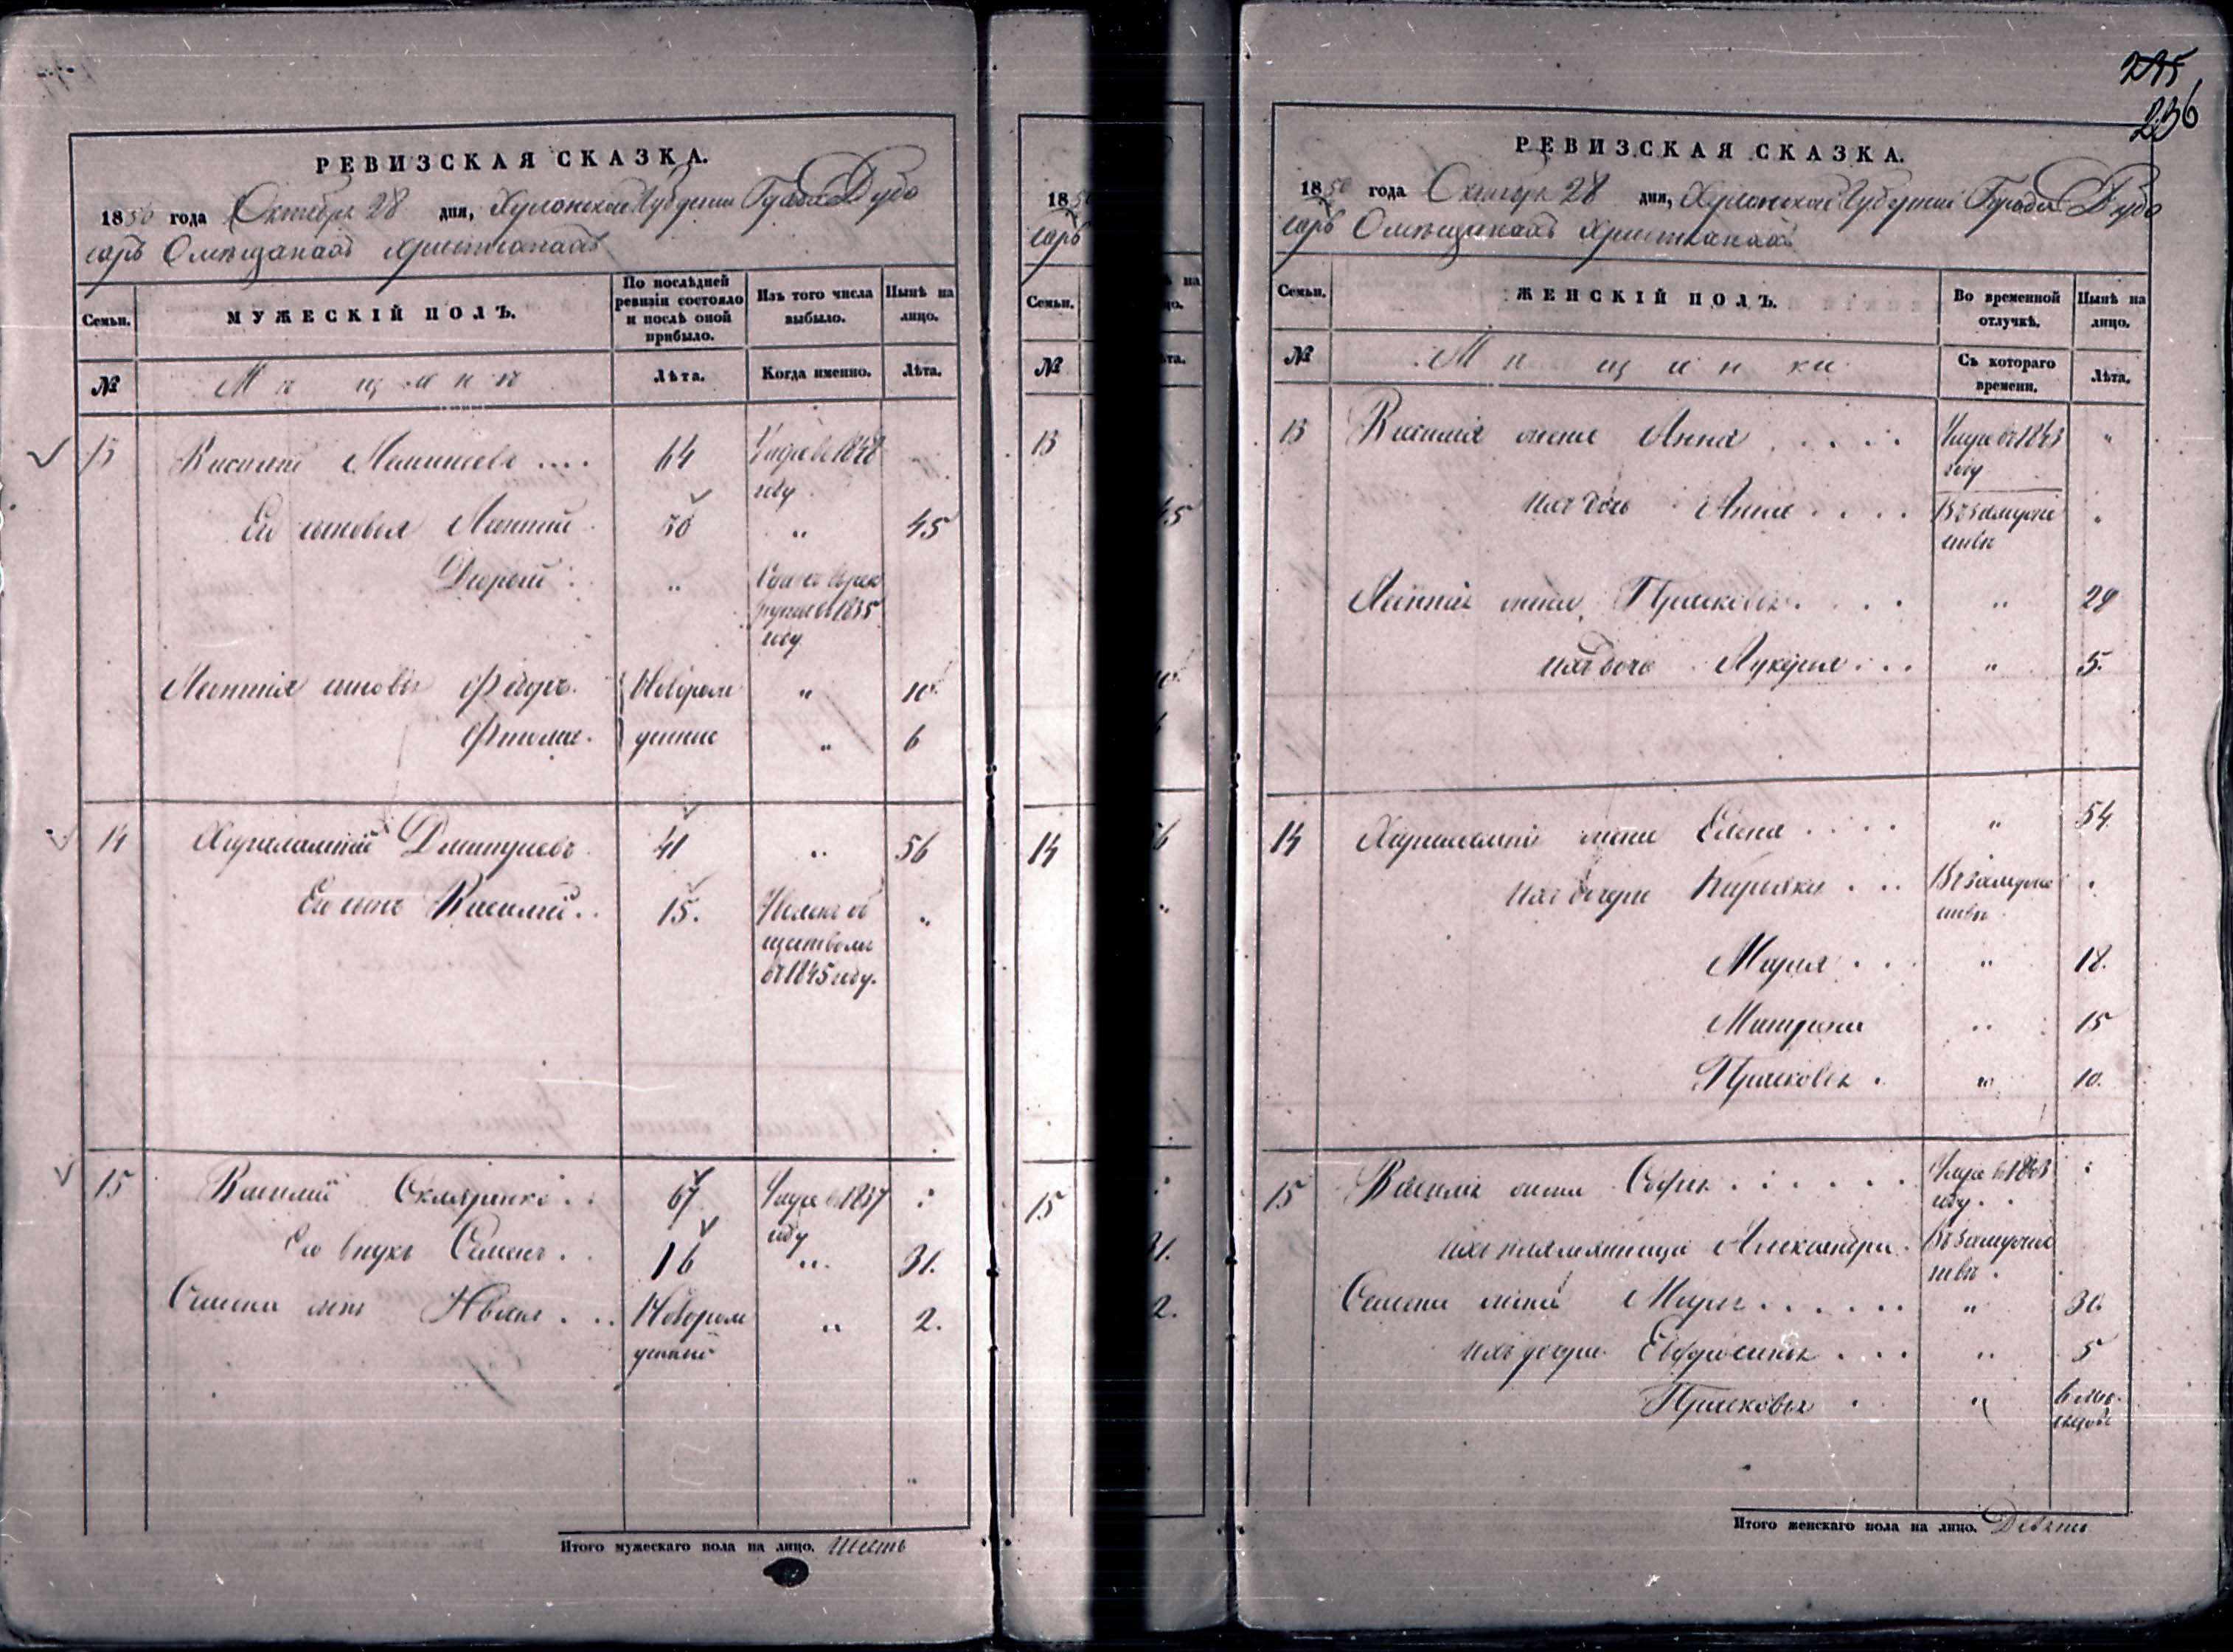 РЕВИЗСКАЯ СКАЗКА.
1850 года Октября 28 дня, Херсонской Губернии Города Дубо
саръ О мещанахъ христіанахъ
Семьи.
МУЖЕСКІЙ ПОЛЪ.
По послѣдней ревизіи состояло и послѣ оной прибыло.
Изъ того числа выбыло.
Нынѣ на лицо.
№
Мѣщане
Лѣта.
Когда именно.
Лѣта.
13 Василій .... 64 Умре въ 1848
году
Его сыновья Леонтій 30 " 45
" Сданъ въ рек
руты въ 1835
году
Леонтія сыновья Федоръ. Новорож " 10.
Фтома. денные " 6
14 Харалампій Дмитріевъ 41 " 56
Его сынъ Василій.. 15. об
ществомъ
въ 1845 году.
"
15 Василій Скляренко.. 67 Умре въ 1837
году
Его внукъ Семенъ.. 16 " 31.
Семена сынъ Иванъ... Новорож " 2.
денный
Итого мужескаго пола на лицо. Шесть
1850
саръ
Семьи.
№
13
14
15
на
цо.
ѣта.
45
10.
6
56
"
31.
2.
235
236
РЕВИЗСКАЯ СКАЗКА.
1850 года Октября 28 дня, Херсонской Губерніи Города Дубо
саръ О мещанахъ христіанахъ
Семьи.
ЖЕНСКІЙ ПОЛЪ.
Во временной отлучкѣ.
Нынѣ на лицо.
№
Мѣщанки
Съ котораго времени.
Лѣта.
13 Василія жена Анна..... Умре въ 1843 "
году
ихъ дочь Анна.... Въ замуже "
ствѣ
Леонтія жена Прасковья.... " 29
ихъ дочь Лукерія... " 5.
14 Харалампія жена Елена.... " 54
ихъ дочери Кирьяки... Въ замуже "
ствѣ
Марія... " 18.
Матрена " 15
Прасковья. " 10.
15 Василія жена Софія...... Умре въ 1843
году.
ихъ племянница Александра. Въ замуже
ствѣ.
Семена жена Марья...... " 30.
ихъ дочери Евфросинья.... " 5
Прасковья. " 6 мѣ-
сяцовъ
Итого женскаго пола на лицо. Девять